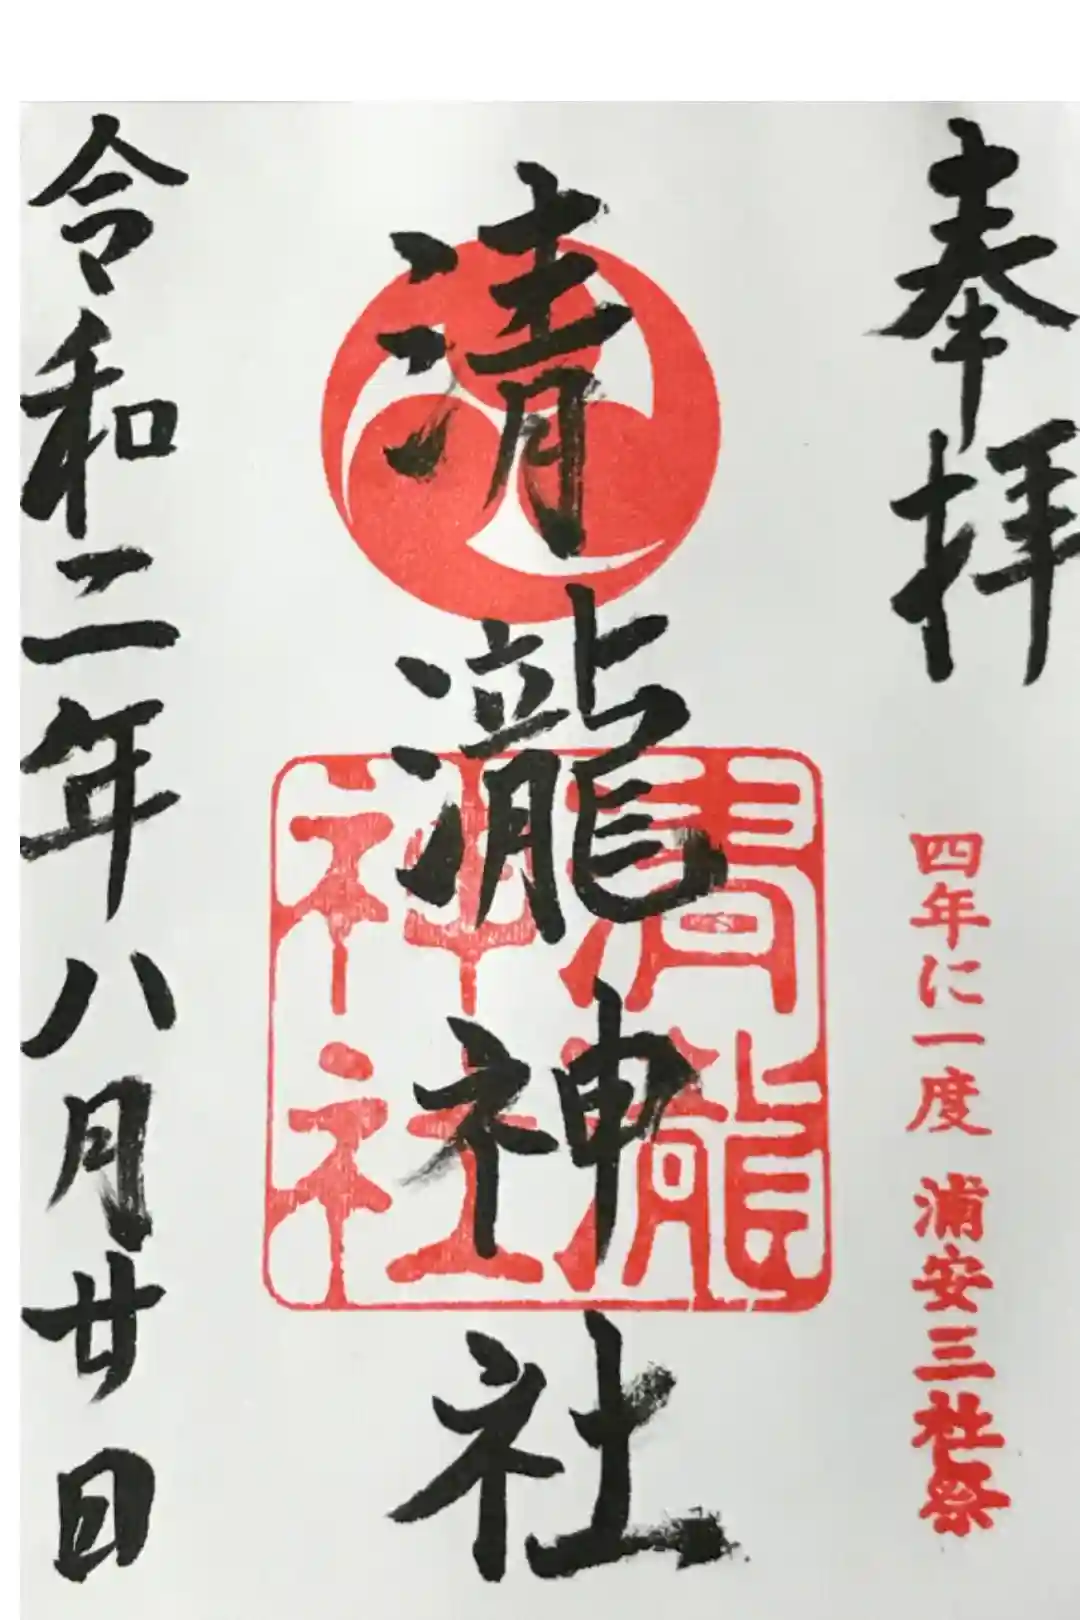 奉拝
四年に一度 浦安三社祭
清瀧神社
清瀧
神社
令和二年八月廿日